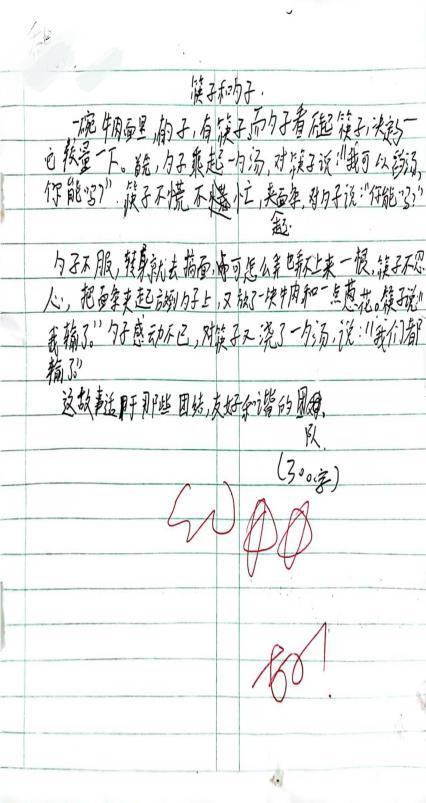 筷子和勺子.
一碗牛肉面里,有勺子,有筷子,而勺子看不起筷子,决定与
它较量一下。首先,勺子乘起一勺汤,对筷子说:"我可以舀汤,
你能吗?"筷子不慌不忙,夹起面条,对勺子说:"你能吗?"
勺子不服,转身就去捞面,可怎么弄也弄不上来一根,筷子不忍
心,把面条夹起放到勺子上,又放了一块牛肉和一点葱花。筷子说:"
我输了。"勺子感动不已,对筷子又浇了一勺汤,说:"我们都
输了。"
这故事适用于那些团结,友好和谐的团
队.
(300字)